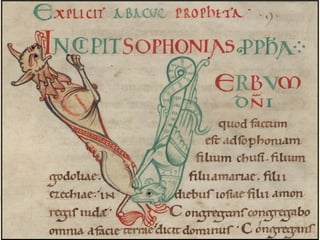 EXPLICIT ABACUC PROPHETA
INCIPIT SOPHONIAS. PPHA
ERBUM
DNI
quod factum
est ad sophoniam
filium chusi. filium
godoliae. filii amariae. filii
ezechiae. IN diebus iosiae filii amon
regis iudae. Congregans congregabo
omnia a facie terrae dicit dominus. Congregans